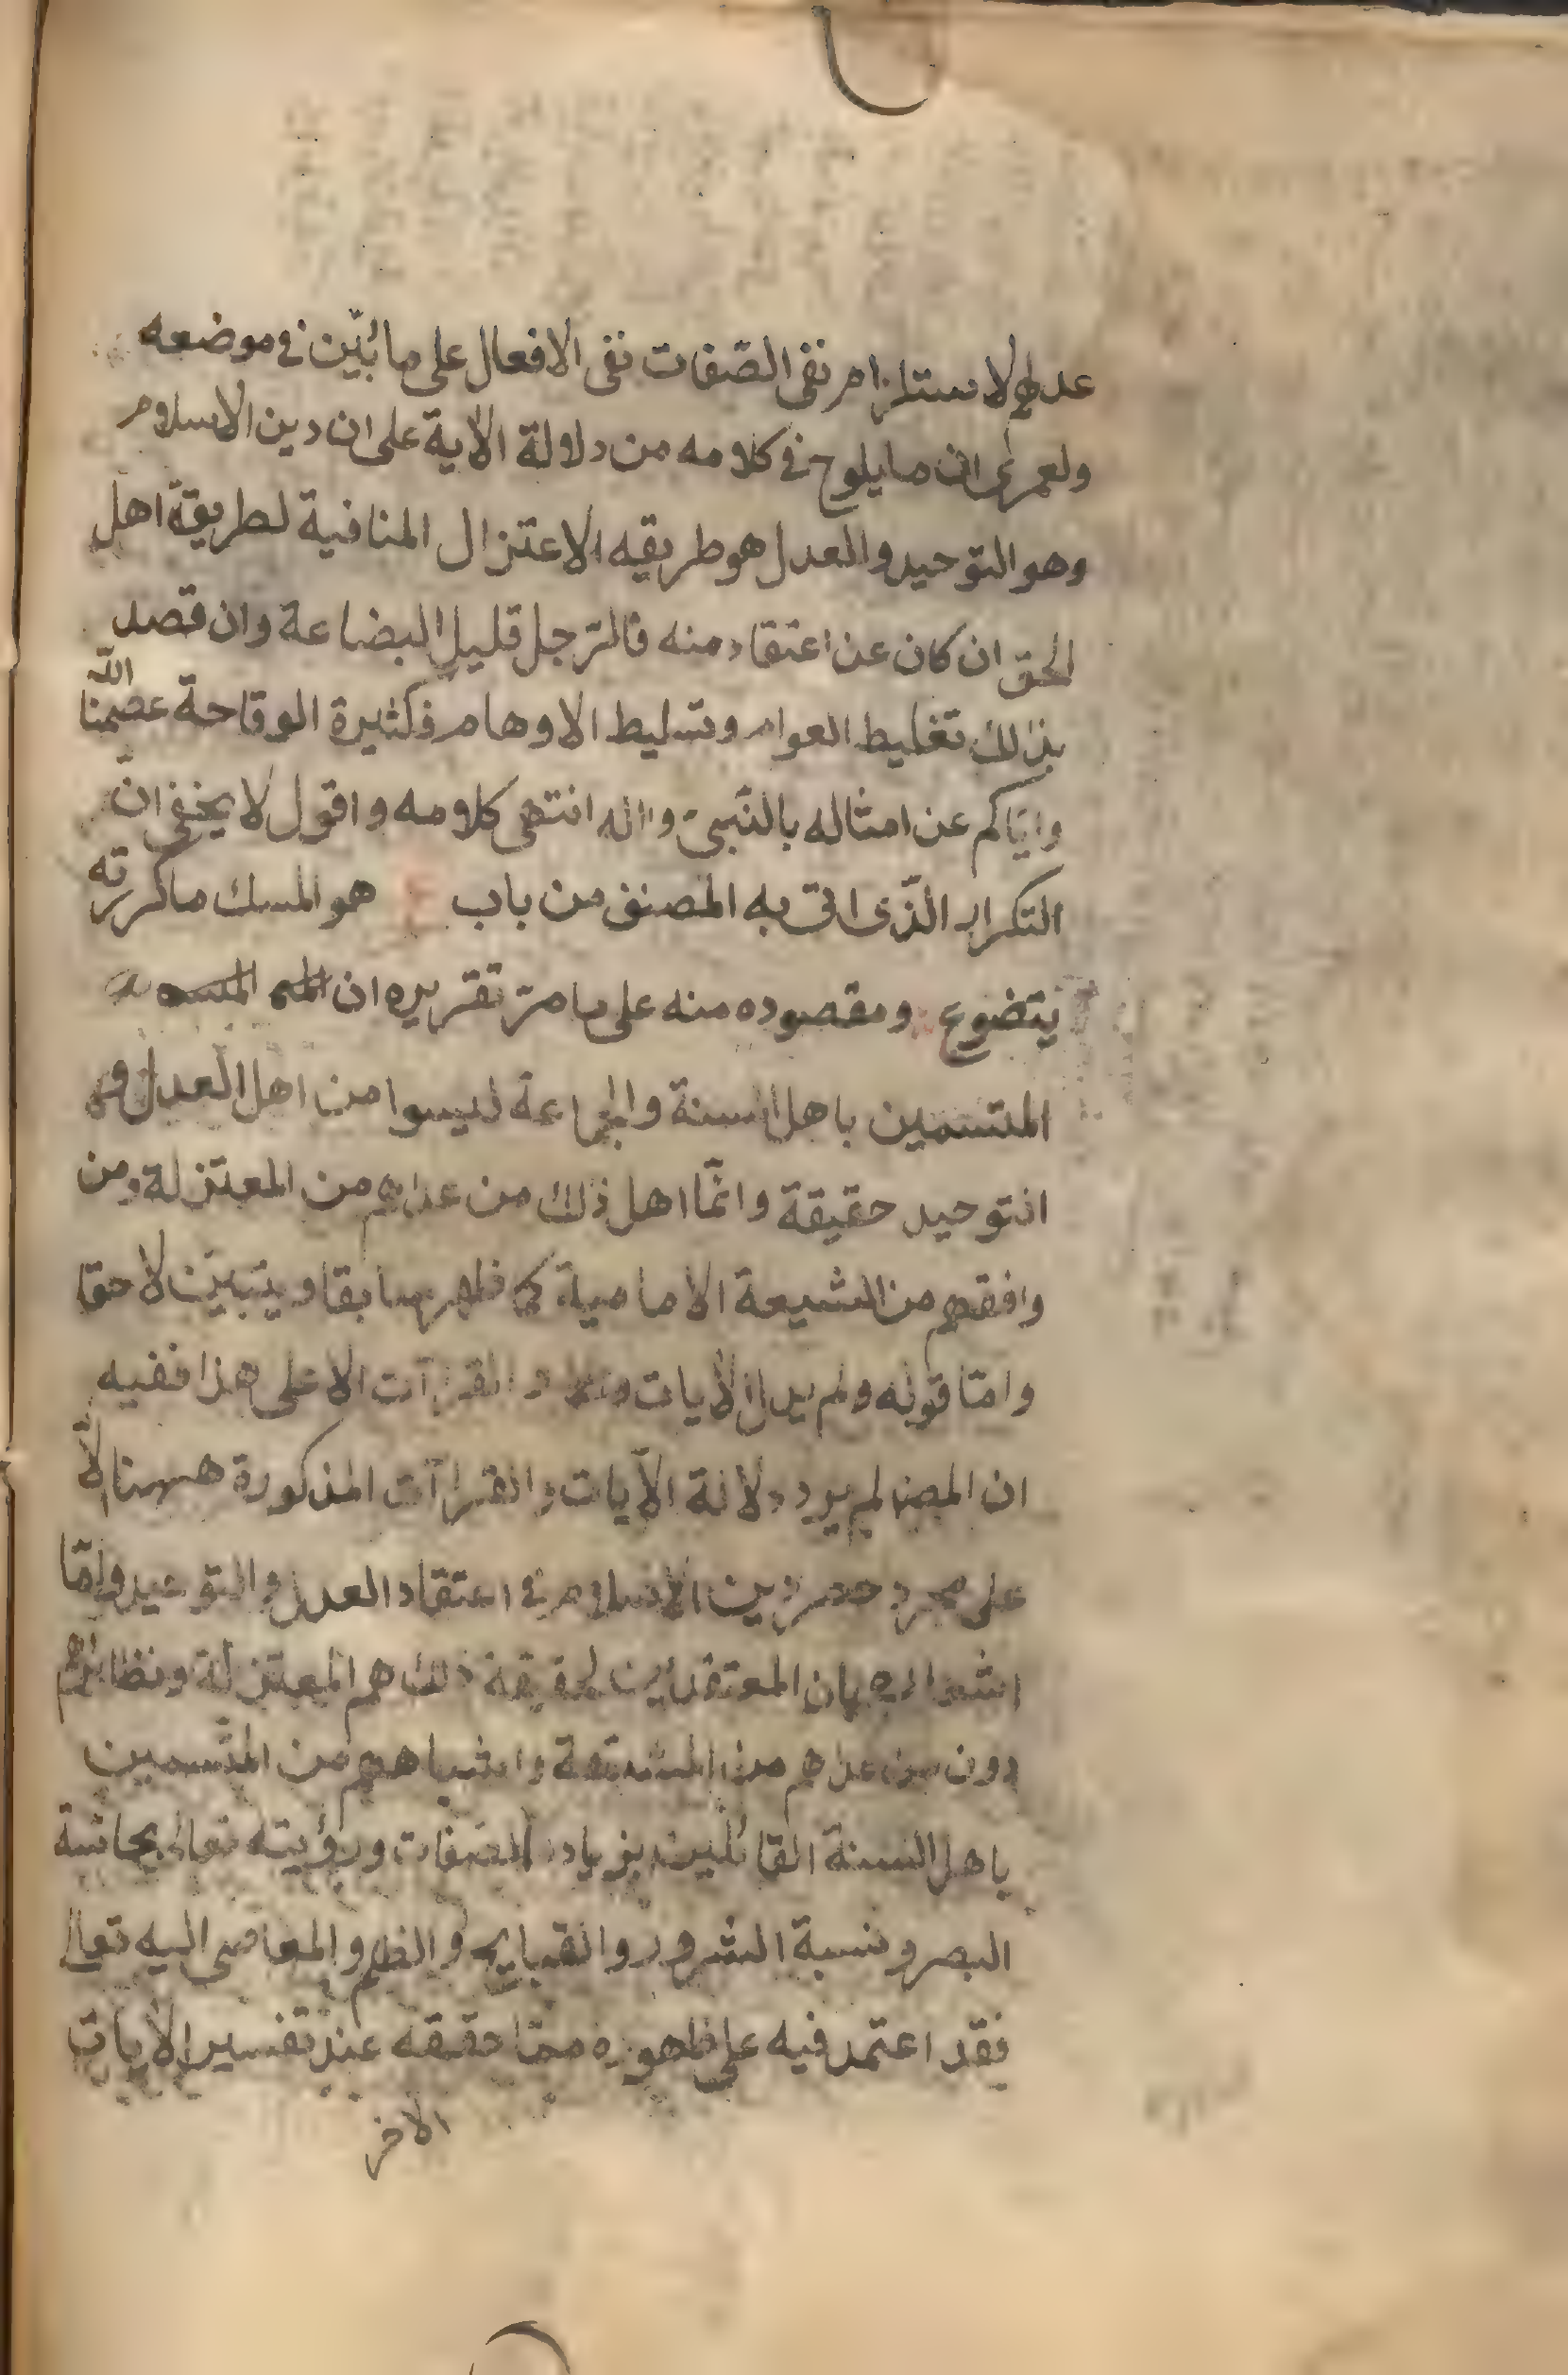 عدلهم لاستلزام نفى الصّفات نفى الافعال على ما بُيّن فى موضعه
ولعمرى ان ما يلوح فى كلامه من دلالة الاية على ان دين الاسلام
وهو التوحيد والعدل هو طريقه الاعتزال المنافية لطريقة اهل
الحق ان كان عن اعتقاد منه فالرّجل قليل البضاعة وان قصد
بذلك تغليط العوام وتسليط الاوهام فكثيرة الوقاحة عصمنا الله
وايّاكم عن امثاله بالنّبىّ واله انتهى كلامه واقول لا يخفى انّ
التكرار الذّى اتى به المصنف من باب هو المسك ما كررته
يتضوع ومقصوده منه على ما مرّ تقريره ان
المتسمين باهل السنة والجماعة ليسوا من اهل العدل و
التوحيد حقيقة وانّما اهل ذلك من عداهم من المعتزلة ومن
وافقهم من الشيعة الامامية كما ظهر سابقا ويتبيّن لاحقا
وامّا قوله ولم يدل الأيات و القرآآت الا على هذا ففيه
ان المصنف لم يرد دلالة الآيات والقرآآت المذكورة ههنا الّا
على مجرد حصر دين الاسلام فى اعتقاد العدل والتوحيد وامّا
اشعاره بان المعتقدين لحقيقة ذلك هم المعتزلة ونظائرهم
دون من عداهم من المشبهة واشباههم من المتّسمين
باهل السنة القائلين بزيادة الصّفات ورؤيته تعالى بحاسّة
البصر ونسبة الشرور والقبايح والظلم والمعاصى اليه تعالى
فقد اعتمد فيه على ظهوره ممّا حققه عند تفسير الأيات
الاخر